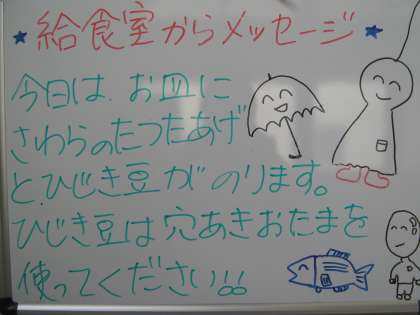 ★給食室からメッセージ★
今日は、お皿に
さわらのたつたあげ
と、ひじき豆がのります。
ひじき豆は穴あきおたまを
使ってください!!